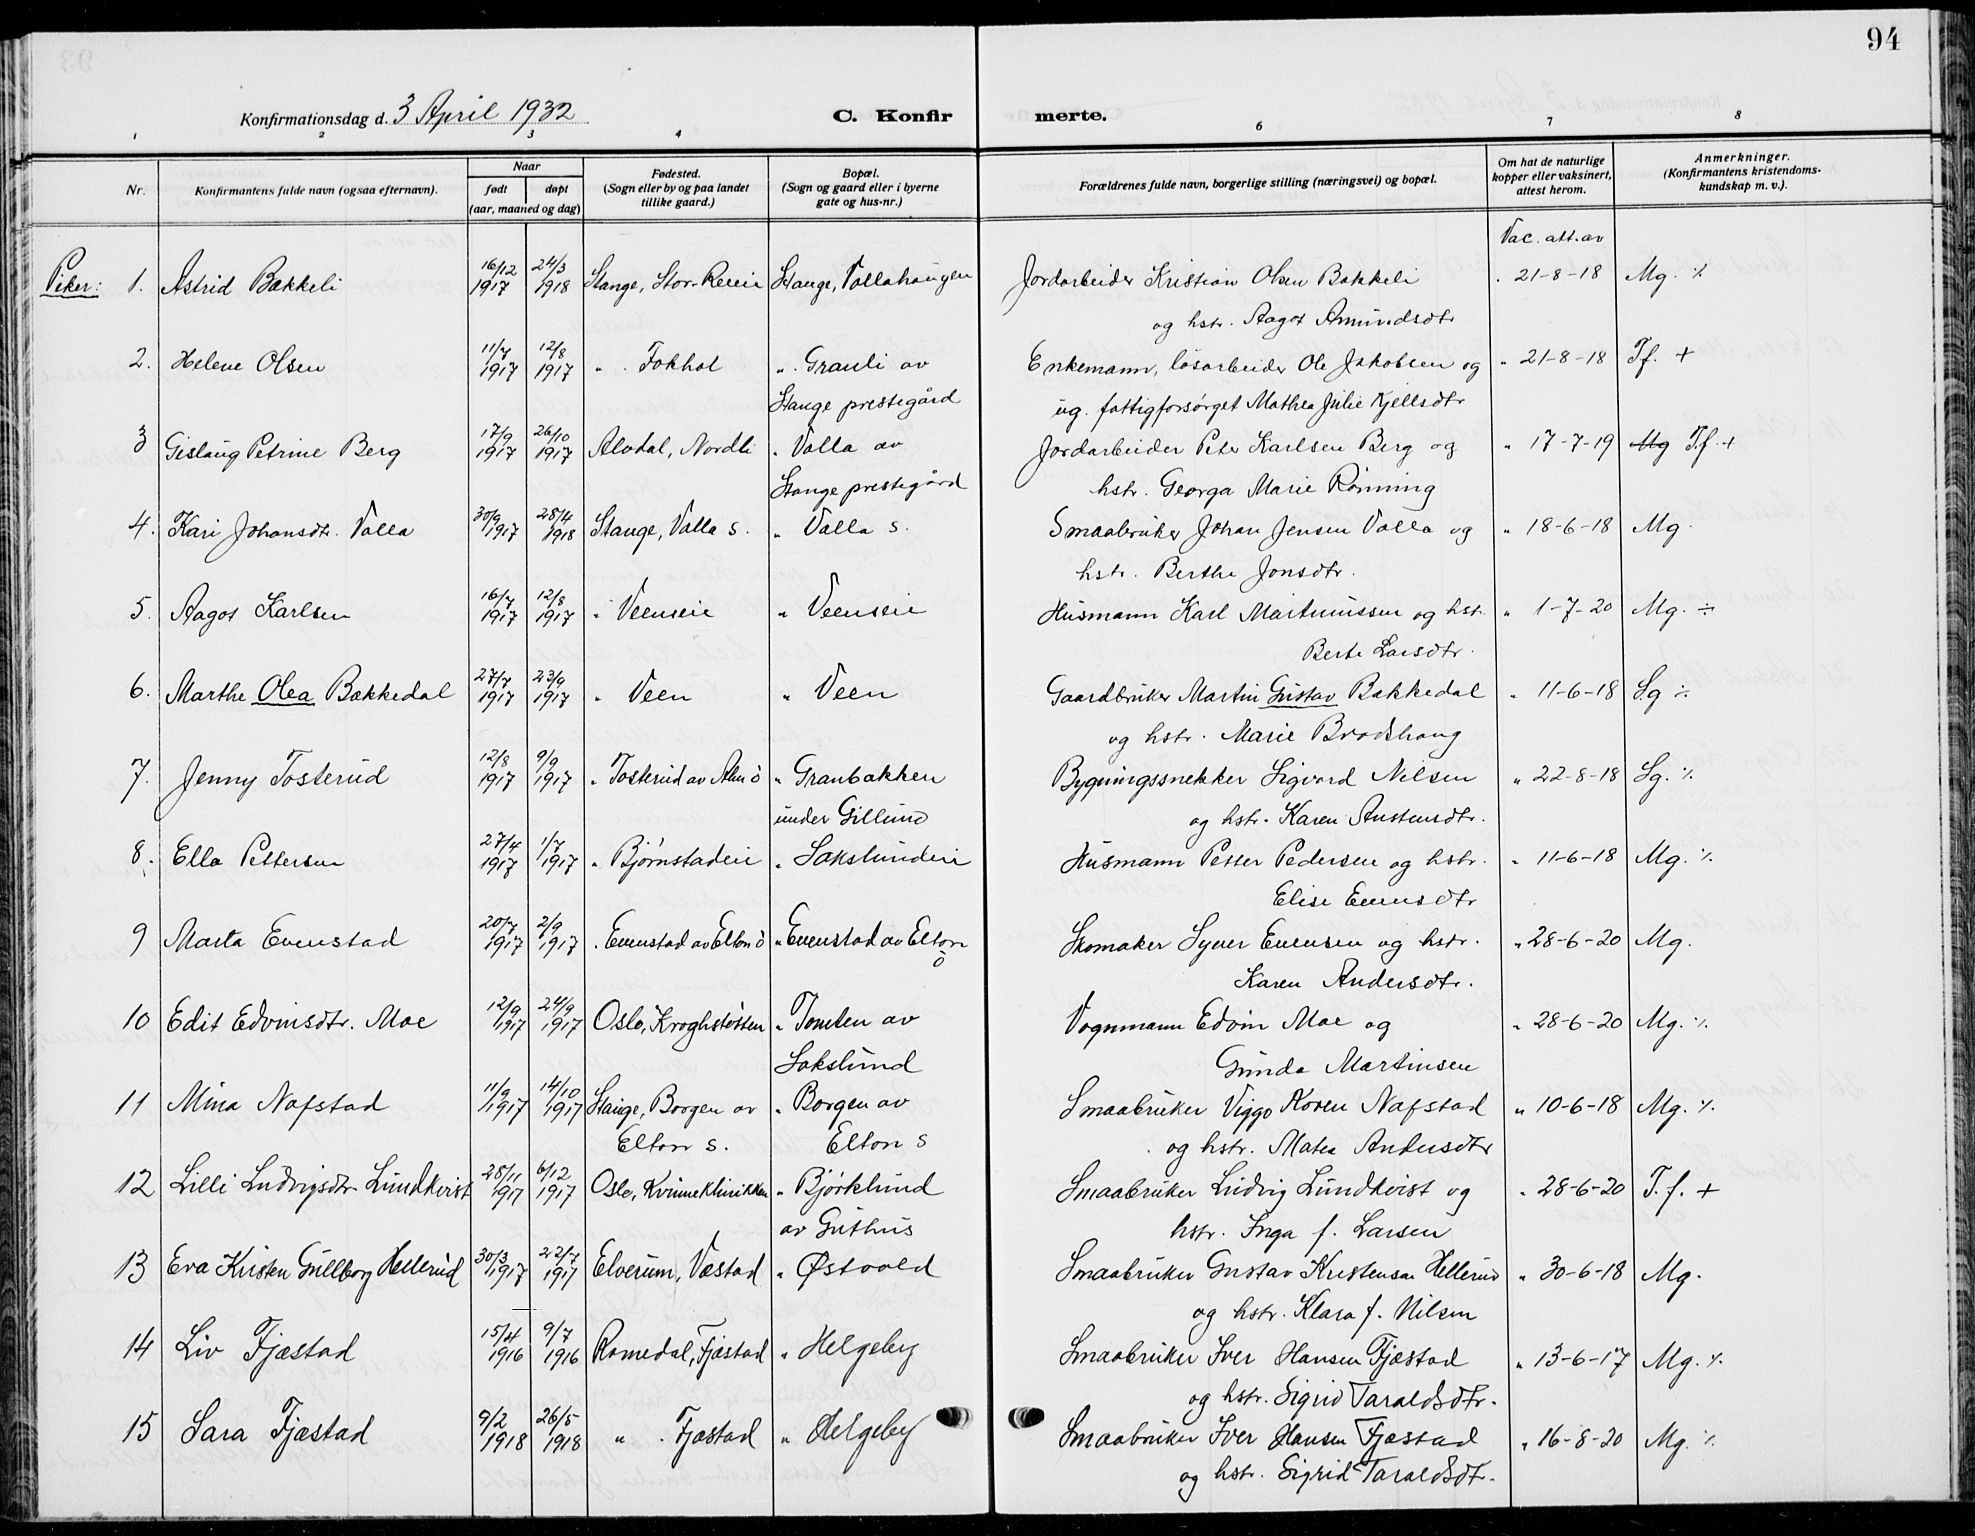 94
Konfirmationsdag d. 3 April 1932
C. Konfir merte.
1 2 3 4 6 7 8
Nr.
Konfirmantens fulde navn (ogsaa efternavn).
Naar
født døpt
(aar, maaned og dag)
Fødested.
(Sogn eller by og paa landet
tillike gaard.)
Bopæl.
(Sogn og gaard eller i byerne
gate og hus-nr.)
Forældrenes fulde navn, borgerlige stilling (næringsvei) og bopæl.
Om hat de naturlige
kopper eller vaksinert,
attest herom.
Anmerkninger.
(Konfirmantens kristendoms-
kundskap m. v.).
Vac. att. av
Piker: 1. Astrid Bækkeli 16/12 1917 24/3 1918 Stange, Stor-Reeie Stange, Vollahaugen Jordarbeider Kristian Olsen Bakkeli 21-8-18 Mg. %
og hstr. Aagot Amundsdtr
2. Helene Olsen 11/7 1917 12/8 1917 " Fokhol " Granli av Enkemann, løsarbeider Ole Jakobsen og " 21-8-18 Tf. +
Stange prestegård ug. fattigforsørget Mathea Julie Kjellsdtr
3 Gislaug Petrine Berg 17/9 1917 26/10 1917 Alvdal, Nordli " Volla av Jordarbeider Peter Karlsen Berg og " 17-7-19 Mg T.f. +
Stange prestegård hstr. Georga Marie Rønning
4. Kari Johansdtr. Valla 30/9 1917 28/4 1918 Stange, Valla s. " Valla s. Smaabruker Johan Jensen Valla og " 18-6-18 Mg.
hstr. Berthe Jonsdtr.
5. Aagot Karlsen 16/7 1917 12/8 1917 " Veenseie " Veenseie Husmann Karl Martinussen og hst. " 1-7-20 Mg. ÷
Berte Larsdtr.
6. Marthe Olea Bækkedal 27/7 1917 23/9 1917 " Veen " Veen Gaardbruker Martin Gustav Bakkedal " 11-6-18 Sg %
og hstr. Marie Brodshaug
7. Jenny Tosterud 12/8 1917 9/9 1917 " Tosterud av Alm ö " Granbakken Bygningssnekker Sigvard Nilsen " 22-8-18 Sg. %
under Gillund og hstr. Karen Austensdtr.
8. Ella Pettersen 27/4 1917 1/7 1917 " Bjørnstadeie " Sakslundeie Husmann Petter Pedersen og hstr. " 11-6-18 Mg. %
Elise Evensdtr
9 Marta Evenstad 20/7 1917 2/9 1917 " Evenstad av Elton ö " Evenstad av Elton ö Skomaker Syver Evensen og hstr. " 28-6-20 Mg.
Karen Andersdtr.
10 Edit Edvinsdtr. Moe 12/9 1917 24/9 1917 Oslo, Kroghstøtten " Tomten av Vognmann Edvin Moe og " 28-6-20 Mg. %
Sakslund Gunda Martinsen
11 Mina Nafstad 11/9 1917 14/10 1917 Stange, Borgen av " Borgen av Smaabruker Viggo Koren Nafstad " 10-6-18 Mg. %
Elton s. Elton s og hstr. Matea Andersdtr
12 Lilli Ludvigsdtr. Lundkvist 28/11 1917 6/12 1917 Oslo, Kvinneklinikken " Bjørklund Smaabruker Ludvig Lundkvist og " 28-6-20 T.f. +
av Guthus hstr. Inga f. Larsen
13 Eva Kirsten Gullborg Hellerud 30/3 1917 22/7 1917 Elverum, Vestad " Østvold Smaabruker Gustav Kristensen Hellerud " 30-6-18 Mg.
og hstr. Klara f. Nilsen
14 Liv Fjæstad 15/4 1916 9/7 1916 Romedal, Fjæstad " Helgeby Smaabruker Iver Hansen Fjæstad " 13-6-17 Mg. %
og hstr. Sigrid Taraldsdtr.
15 Sara Fjæstad 9/2 1918 26/5 1918 " Fjæstad " Helgeby Smaabruker Iver Hansen Fjæstad " 16-8-20 Mg. %
og hstr. Sigrid Taraldsdtr.